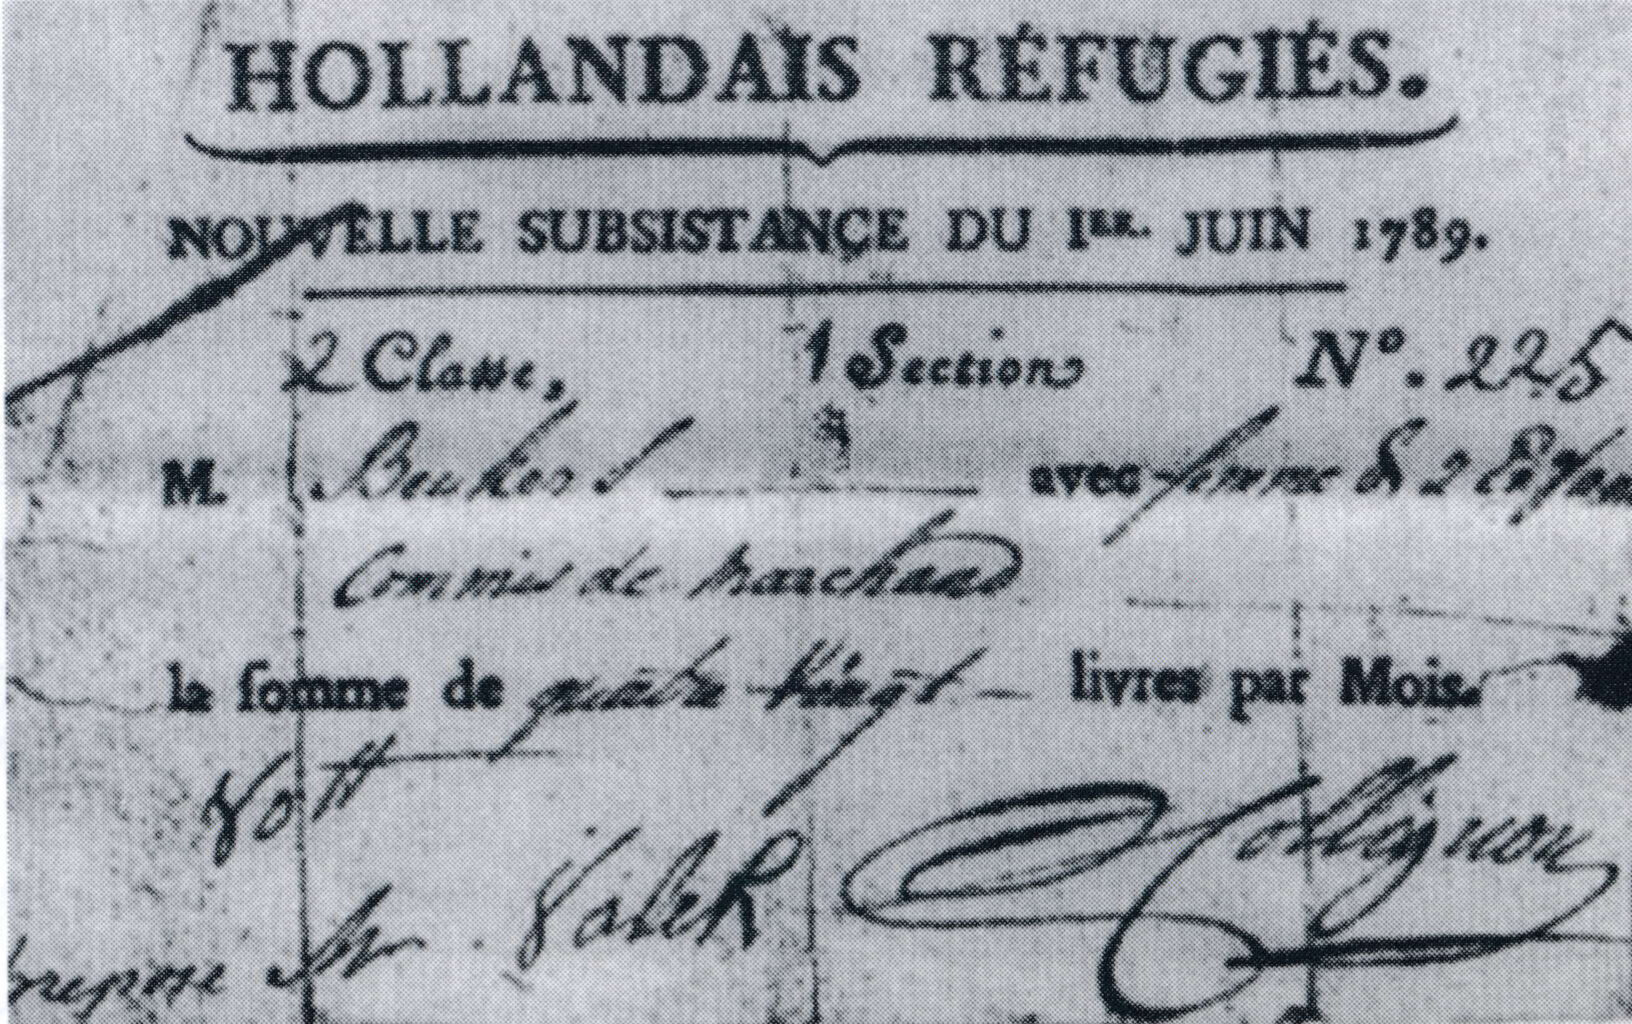 HOLLANDAIS RÉFUGIÉS.
NOUVELLE SUBSISTANCE DU IER. JUIN 1789.
2 Classe, 1 Section N°. 225
M. avec femme & 2 Enfan
Commis de marchand
la somme de quatre vingt livres par Mois.
80 tt
Valck Collignon